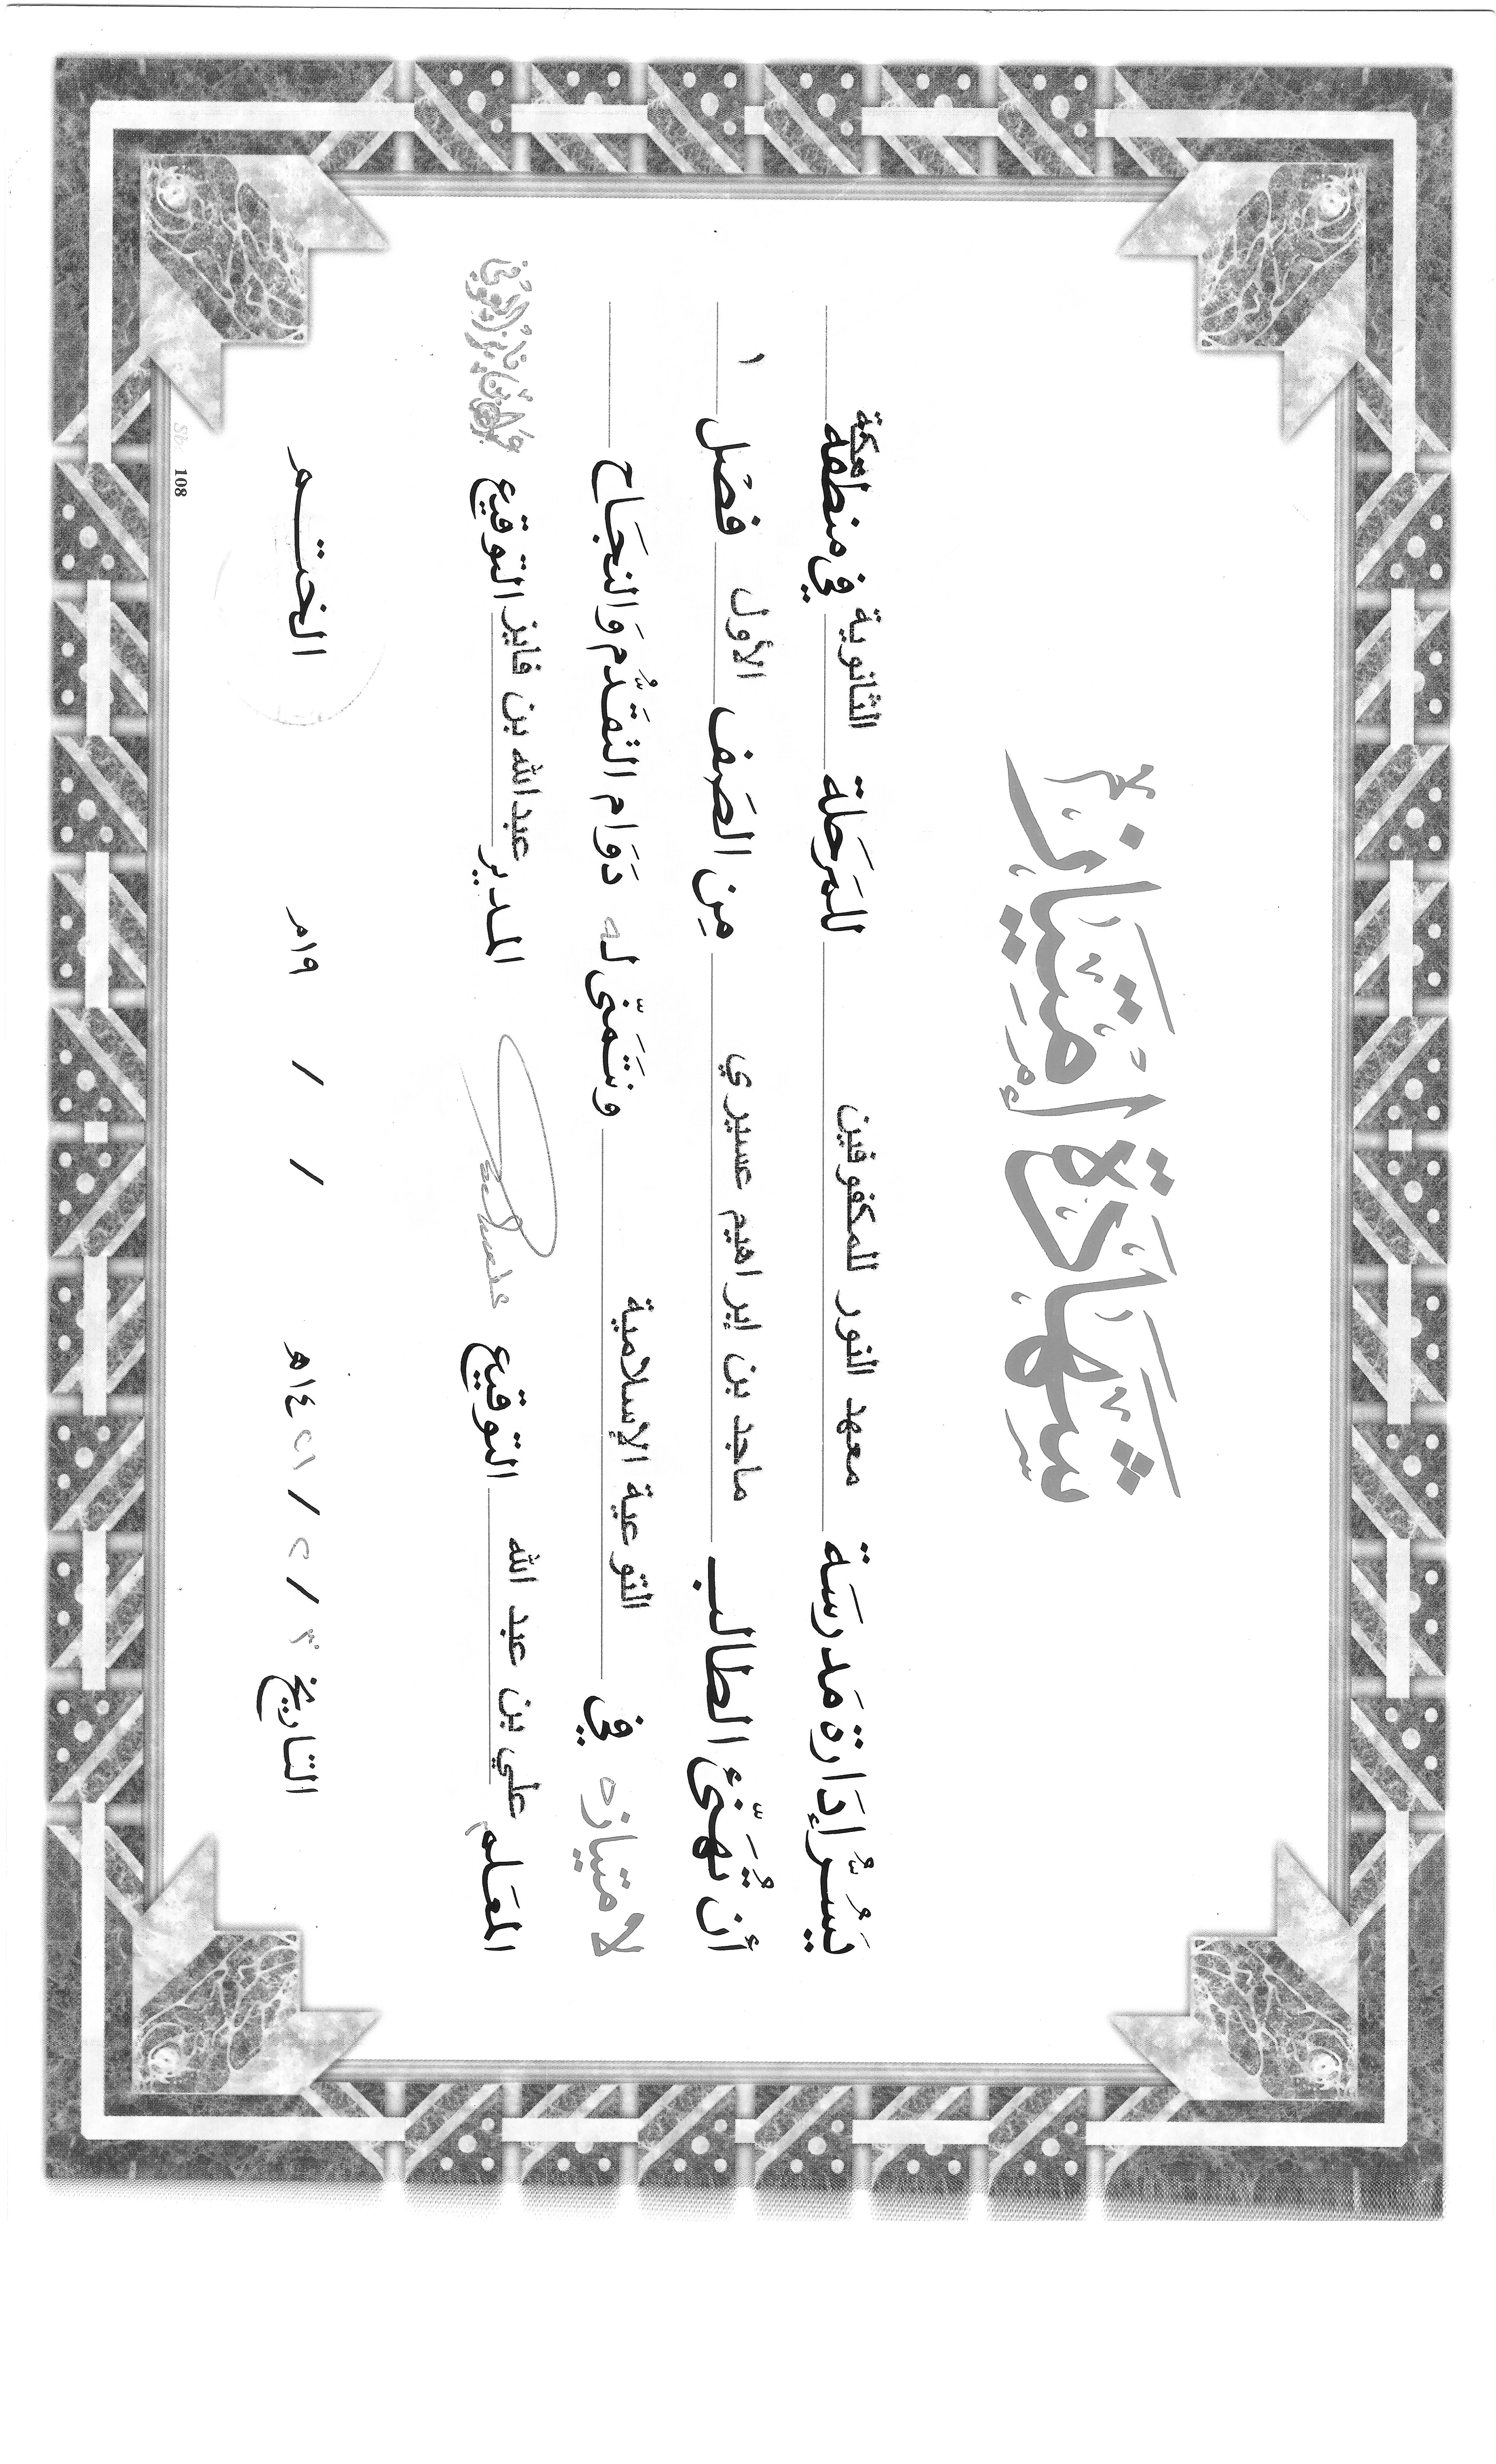 شَهَادَةُ اِمْتِيَاز
يَسُرُّ إدَارة مَدرسَة معهد النور للمكفوفين للمَرحَلة الثانوية في منطقة مكة
أن تُهَنّئ الطالب ماجد بن إبراهيم عسيري مِن الصَف الأول فصْل ١
لامتيازه في التوعية الإسلامية ونتَمَنّى له دَوَام التقَدُّم وَالنجَاح
المعَلم علي بن عبد الله التوقيع المدير عبدالله بن فايز التوقيع
التاريخ ٣ / ٢ / ١٤٢١هـ / / ١٩م الختم
108